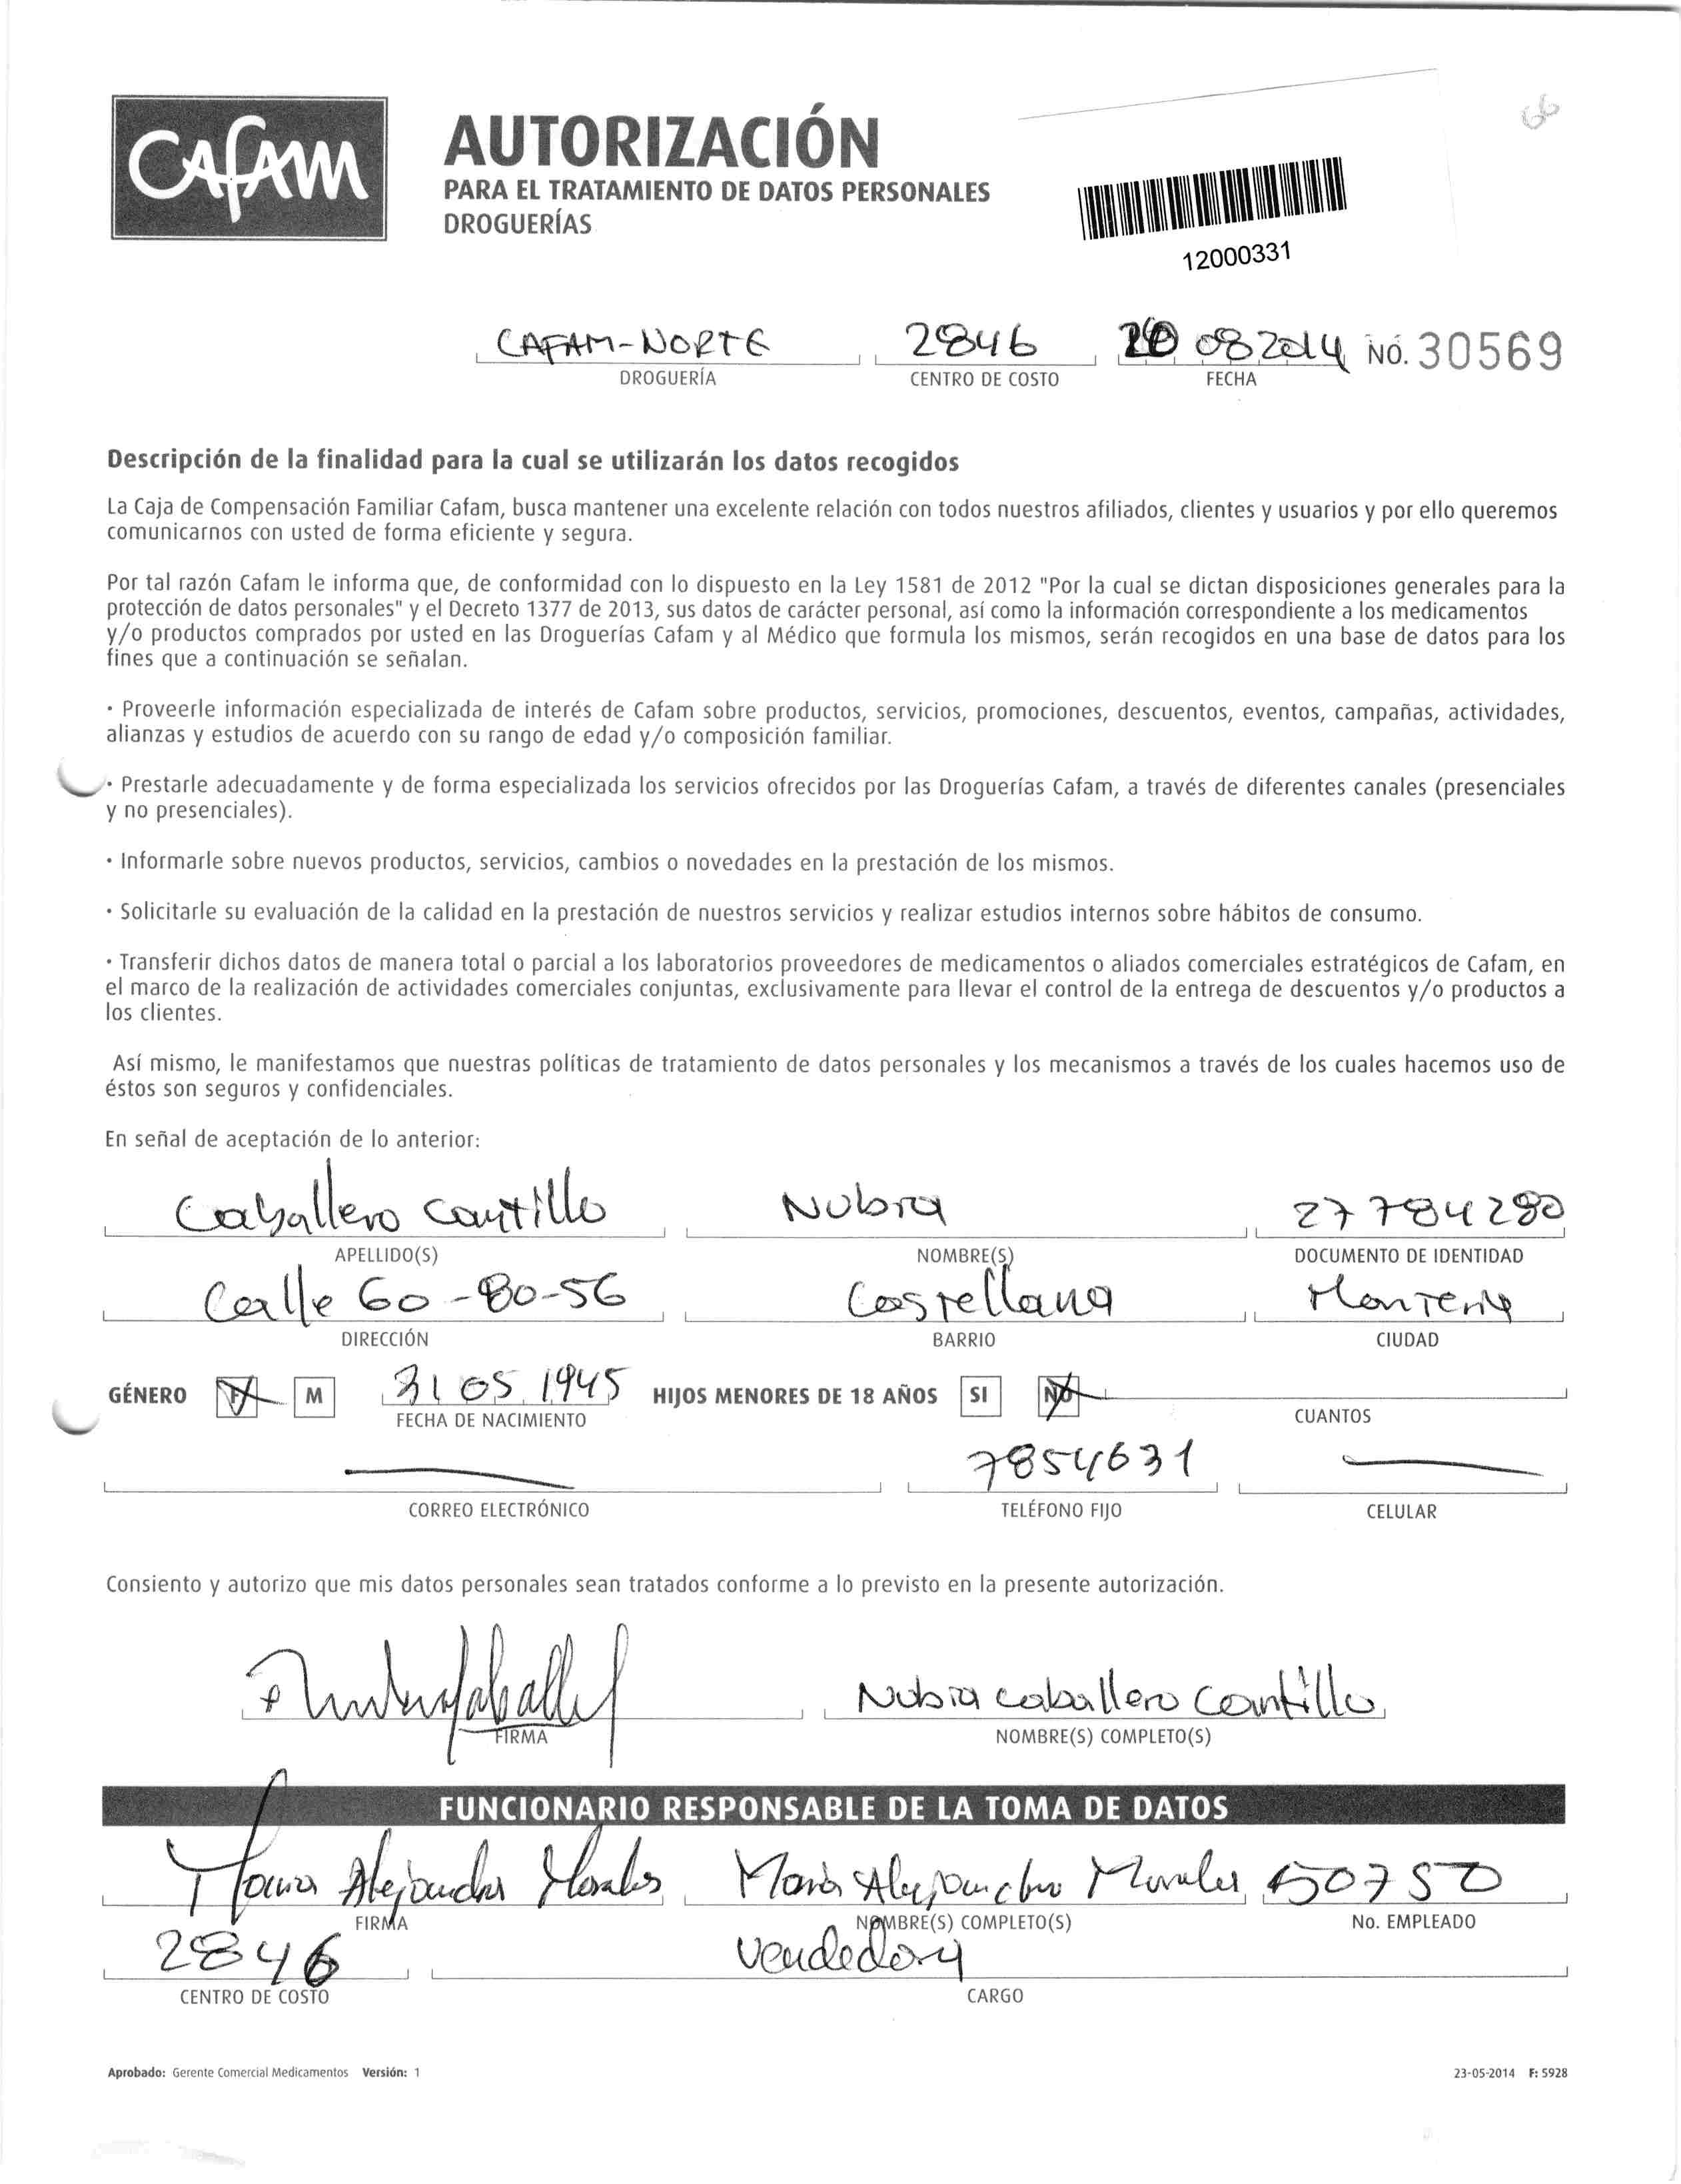 Cafam
AUTORIZACIÓN
PARA EL TRATAMIENTO DE DATOS PERSONALES
DROGUERÍAS
66
12000331
CAFAM-NORTE 2846 08 2014 No. 30569
DROGUERÍA CENTRO DE COSTO FECHA
Descripción de la finalidad para la cual se utilizarán los datos recogidos
La Caja de Compensación Familiar Cafam, busca mantener una excelente relación con todos nuestros afiliados, clientes y usuarios y por ello queremos
comunicarnos con usted de forma eficiente y segura.
Por tal razón Cafam le informa que, de conformidad con lo dispuesto en la Ley 1581 de 2012 "Por la cual se dictan disposiciones generales para la
protección de datos personales" y el Decreto 1377 de 2013, sus datos de carácter personal, así como la información correspondiente a los medicamentos
y/o productos comprados por usted en las Droguerías Cafam y al Médico que formula los mismos, serán recogidos en una base de datos para los
fines que a continuación se señalan.
· Proveerle información especializada de interés de Cafam sobre productos, servicios, promociones, descuentos, eventos, campañas, actividades,
alianzas y estudios de acuerdo con su rango de edad y/o composición familiar.
· Prestarle adecuadamente y de forma especializada los servicios ofrecidos por las Droguerías Cafam, a través de diferentes canales (presenciales
y no presenciales).
· Informarle sobre nuevos productos, servicios, cambios o novedades en la prestación de los mismos.
· Solicitarle su evaluación de la calidad en la prestación de nuestros servicios y realizar estudios internos sobre hábitos de consumo.
· Transferir dichos datos de manera total o parcial a los laboratorios proveedores de medicamentos o aliados comerciales estratégicos de Cafam, en
el marco de la realización de actividades comerciales conjuntas, exclusivamente para llevar el control de la entrega de descuentos y/o productos a
los clientes.
Así mismo, le manifestamos que nuestras políticas de tratamiento de datos personales y los mecanismos a través de los cuales hacemos uso de
éstos son seguros y confidenciales.
En señal de aceptación de lo anterior:
Caballero Cantillo Nubia 27784280
APELLIDO(S) NOMBRE(S) DOCUMENTO DE IDENTIDAD
Calle 60-80-56 Castellana Monteria
DIRECCIÓN BARRIO CIUDAD
GÉNERO F M 31 05 1945 HIJOS MENORES DE 18 AÑOS SI NO
FECHA DE NACIMIENTO CUANTOS
7854631
CORREO ELECTRÓNICO TELÉFONO FIJO CELULAR
Consiento y autorizo que mis datos personales sean tratados conforme a lo previsto en la presente autorización.
Nubia caballero Cantillo
FIRMA NOMBRE(S) COMPLETO(S)
FUNCIONARIO RESPONSABLE DE LA TOMA DE DATOS
Maria Alejandra Morales Maria Alejandra Morales 50750
FIRMA NOMBRE(S) COMPLETO(S) No. EMPLEADO
2846 Vendedora
CENTRO DE COSTO CARGO
Aprobado: Gerente Comercial Medicamentos Versión: 1 23-05-2014 F: 5928